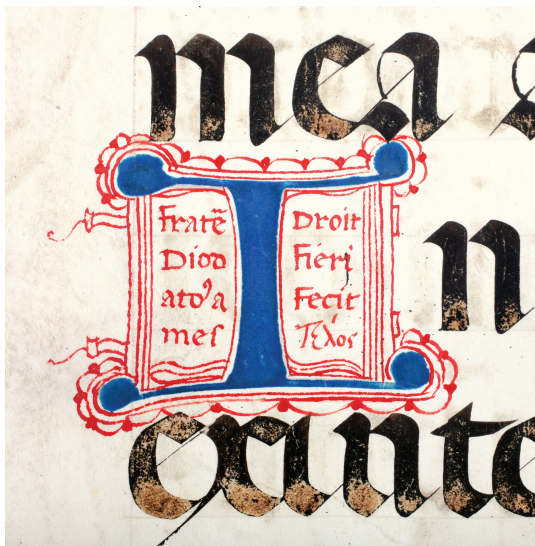 mea
Fratẽ
Diod
atoꝰa
meſ
Droit
Fieri
Fecit
Τέλος
I
n